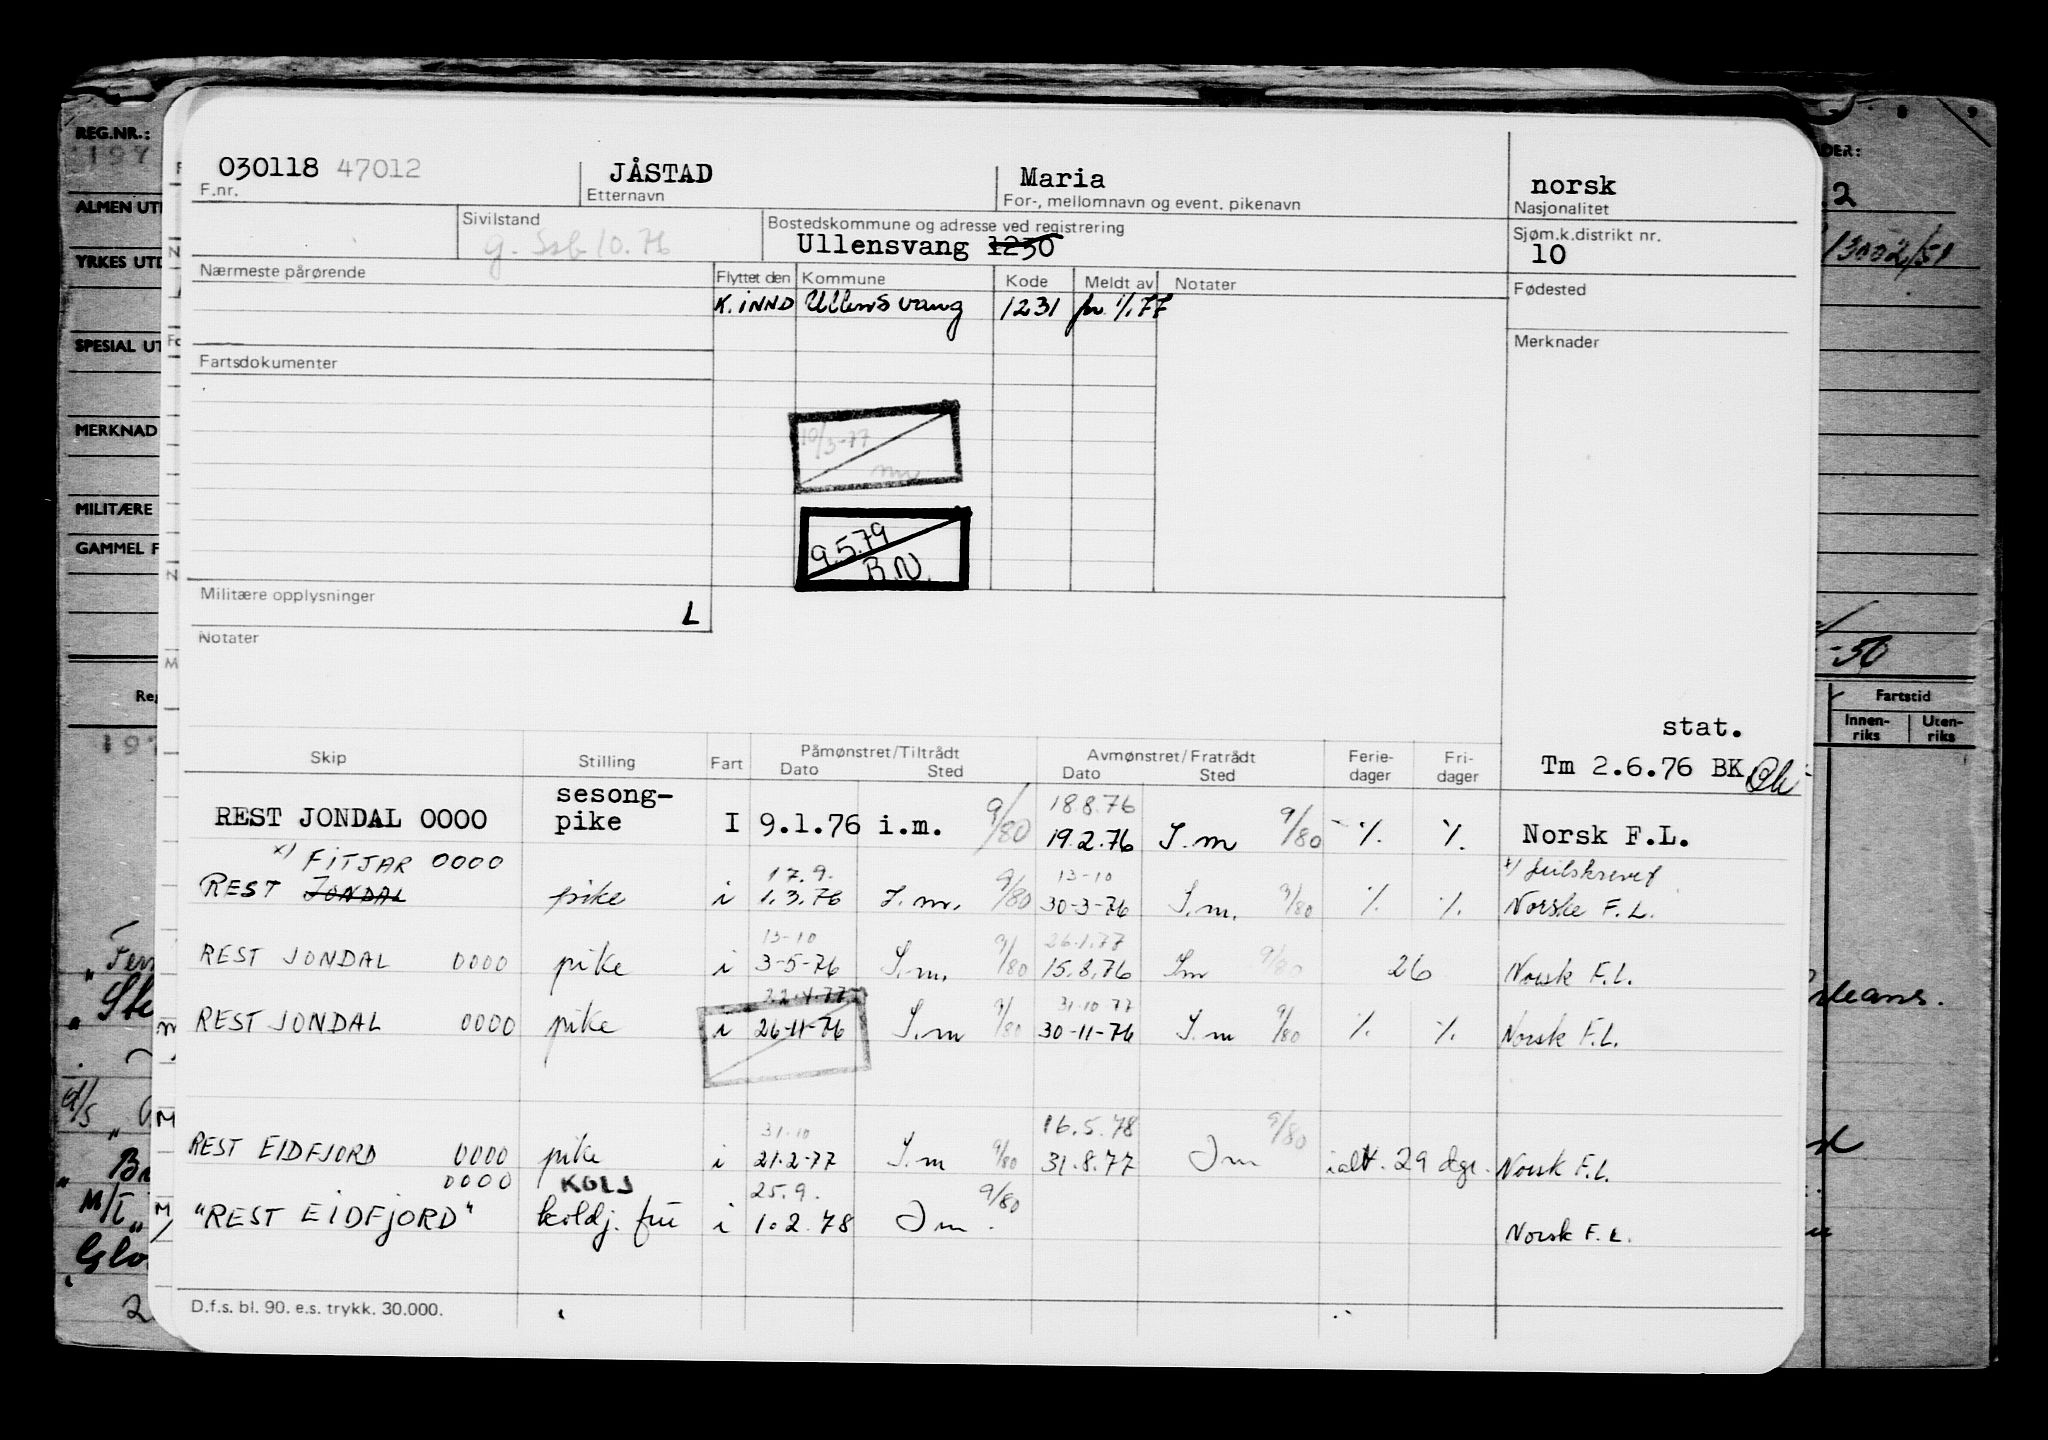 030118 47012
F.nr.
JÅSTAD
Etternavn
Maria
For-, mellomnavn og event. pikenavn
norsk
Nasjonalitet
Sivilstand
g. Ssb 10.76
Bostedskommune og adresse ved registrering
Ullensvang 1230
Sjøm.k.distrikt nr.
10
Nærmeste pårørende
Flyttet den Kommune Kode Meldt av Notater
K. INND Ullensvang 1231 pr. 1/1.77
Fødested
Merknader
Fartsdokumenter
10/3-77
9.5.79
B.N.
Militære opplysninger
L
Notater
stat.
Tm 2.6.76 BK
Skip Stilling Fart Påmønstret/Tiltrådt Avmønstret/Fratrådt Ferie- Fri-
Dato Sted Dato Sted dager dager
sesong- 18.8.76
REST JONDAL 0000 pike I 9.1.76 i.m. 9/80 19.2.76 I.m 9/80 ٪ ٪ Norsk F.L.
x) FITJAR 0000 17.9. 13-10 x)
REST JONDAL pike i 1.3.76 I.m. 9/80 30-3-76 I.m. 9/80 ٪ ٪ Norske F.L.
13-10 26.1.77
REST JONDAL 0000 pike i 3-5-76 I.m. 9/80 15.8.76 Im 9/80 26 Norsk F.L.
22.4.77 31.10 77
REST JONDAL 0000 pike i 26-11-76 I.m 9/80 30-11-76 I.m 9/80 ٪ ٪ Norsk F.L.
31.10 16.5.78
REST EIDFJORD 0000 pike i 21.2-77 I.m 9/80 31.8.77 Im 9/80 ialt. 29 dgr. Norsk F.L.
0000 KOLJ 25.9.
"REST EIDFJORD" koldj. frü i 1.2.78 Im. 9/80 Norsk F.L.
D.f.s. bl. 90. e.s. trykk. 30.000.
REG.NR.:
197
ALMEN UT
YRKES UTD
SPESIAL UT
MERKNAD
MILITÆRE
GAMMEL F
Reg
197
13002/51
-50
Fartstid
Innen-
riks
Uten-
riks